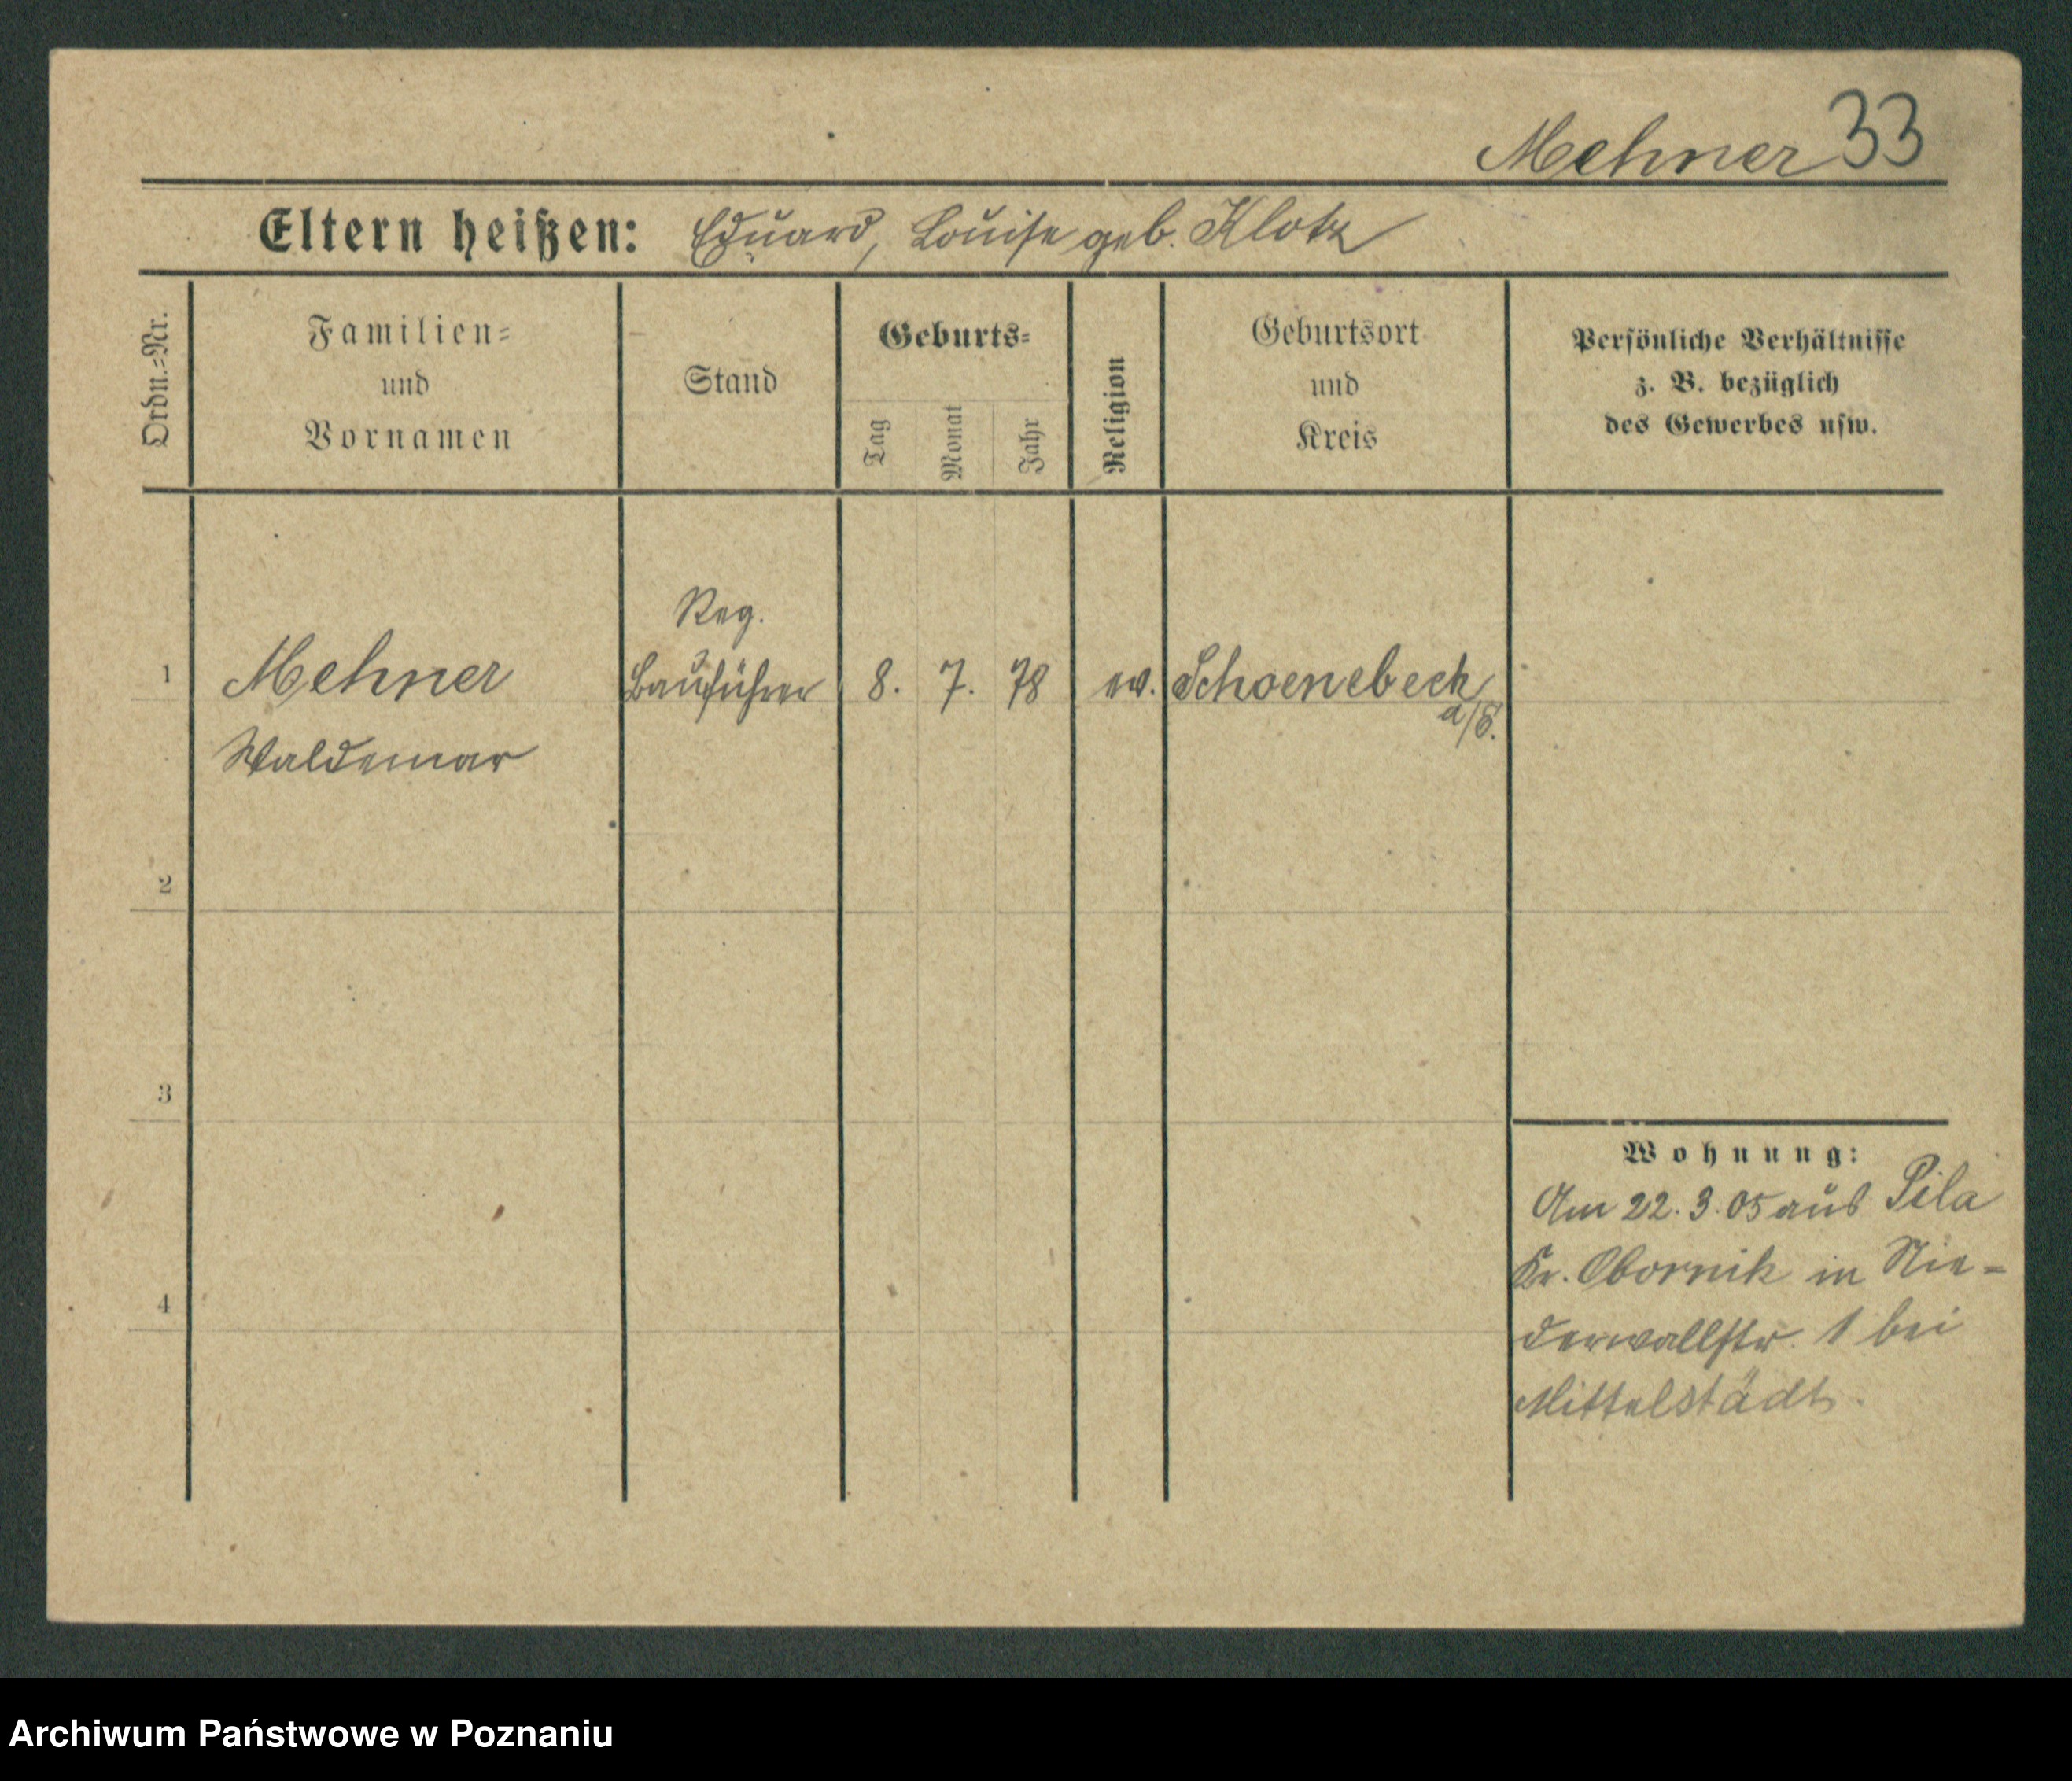 Mehner 33
Eltern heißen: Eduard, Louise geb. Klotz
Ordn.=Nr.
Familien=
und
Vornamen
Stand
Geburts=
Tag
Monat
Jahr
Religion
Geburtsort
und
Kreis
Persönliche Verhältnisse
z. B. bezüglich
des Gewerbes usw.
Reg.
1 Mehner Bauführer 8. 7. 78 ev. Schoenebeck
a/E.
Waldemar
2
3
4
Wohnung:
Am 22. 3. 05 aus Pila
Kr. Obornik in Nie=
derwallstr. 1 bei
Mittelstädt.
Archiwum Państwowe w Poznaniu